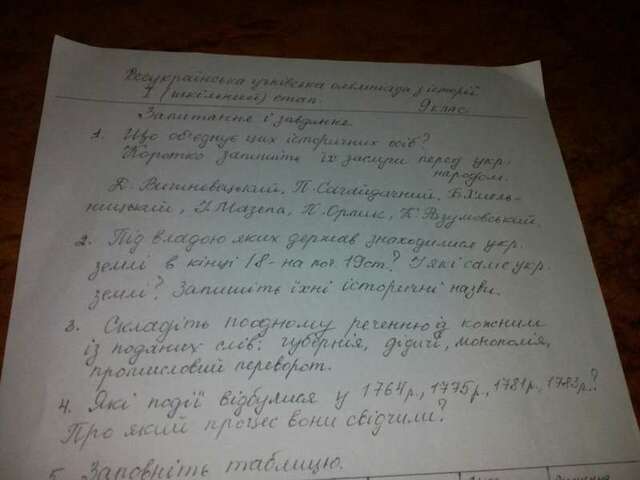 Всеукраїнська учнівська олімпіада з історії
I (шкільний) етап. 9 клас.
Запитання і завдання.
1. Що об'єднує цих історичних осіб?
Коротко запишіть їх заслуги перед укр.
народом.
Д. Вишневецький, П. Сагайдачний, Б. Хмель-
ницький, І. Мазепа, П. Орлик, К. Розумовський.
2. Під владою яких держав знаходилися укр.
землі в кінці 18 - на поч. 19 ст.? І які саме укр.
землі? Запишіть їхні історичні назви.
3. Складіть по одному реченню із кожним
із поданих слів: губернія, дідичі, монополія,
промисловий переворот.
4. Які події відбулися у 1764 р., 1775 р., 1781 р., 1783 р.?
Про який процес вони свідчили?
5. Заповніть таблицю.